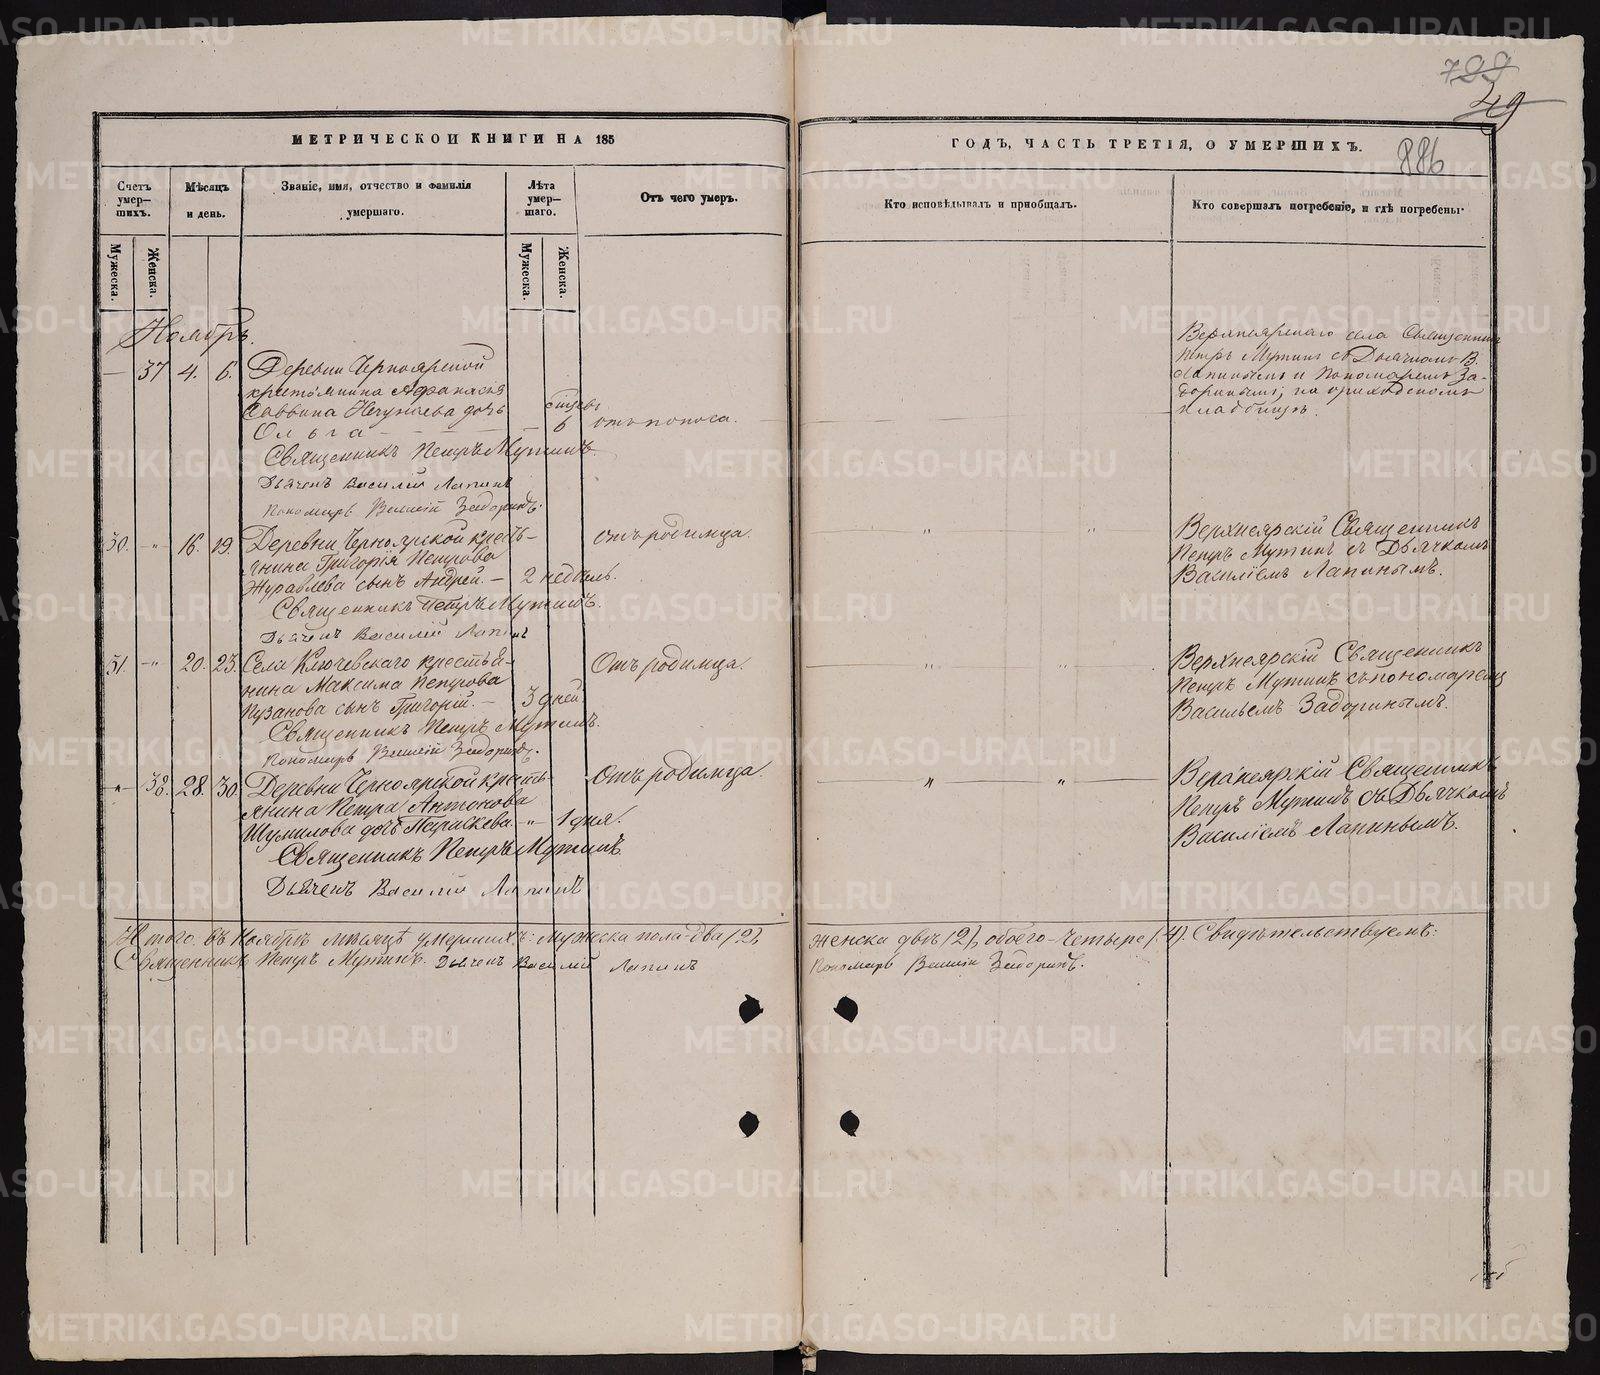 799
49
886
МЕТРИЧЕСКОЙ КНИГИ НА 185
ГОДЪ, ЧАСТЬ ТРЕТІЯ, О УМЕРШИХЪ.
Счетъ умер-шихъ.
Мѣсяцъ и день.
Званіе, имя, отчество и фамилія умершаго.
Лѣта умер-шаго.
Отъ чего умеръ.
Кто исповѣдывалъ и приобщалъ.
Кто совершалъ погребеніе, и гдѣ погребены.
Мужеска.
Женска.
Мужеска.
Женска.
Ноябрь.
— 37 4. 6. Деревни Черноярской
крестьянина Афанасья
Саввина Нечунаева дочь
Ольга — 6 отъ поноса.
Верхнеярскаго села Священникъ
Петръ Мутинъ съ Дьячкомъ В.
Лапинымъ и Пономаремъ За-
доринымъ; на приходскомъ
кладбищѣ.
Священникъ Петръ Мутинъ
Дьячекъ Василій Лапинъ
Пономарь Василій Задоринъ.
50. -"- 16. 19. Деревни Черноярской кресть-
янина Григорія Петрова
Журавлева сынъ Андрей. — 2 недѣль.
отъ родимца.
" "
Верхнеярскій Священникъ
Петръ Мутинъ съ Дьячкомъ
Василіемъ Лапинымъ.
Священникъ Петръ Мутинъ.
Дьячекъ Василій Лапинъ
51. -"- 20. 23. Села Ключевскаго крестья-
нина Максима Петрова
Пузанова сынъ Григорій. — 3 дней.
Отъ родимца.
" "
Верхнеярскій Священникъ
Петръ Мутинъ съ пономаремъ
Васильемъ Задоринымъ.
Священникъ Петръ Мутинъ.
Пономарь Василій Задоринъ.
-"- 38. 28. 30. Деревни Черноярской кресть-
янина Петра Антонова
Шумилова дочь Параскева. -"- 1 дня.
Отъ родимца.
" "
Верхнеярскій Священникъ
Петръ Мутинъ съ Дьячкомъ
Василіемъ Лапинымъ.
Священникъ Петръ Мутинъ.
Дьячекъ Василій Лапинъ
Итого въ Ноябрѣ мѣсяцѣ умершихъ: мужеска пола два /2/, женска двѣ /2/, обоего четыре /4/. Свидѣтельствуемъ:
Священникъ Петръ Мутинъ. Дьячекъ Василій Лапинъ Пономарь Василій Задоринъ.
METRIKI.GASO-URAL.RU